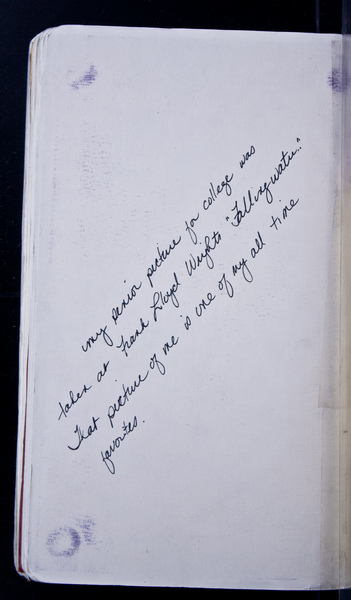 my senior picture for college was
taken at Frank Lloyd Wrights "Fallingwater."
That picture of me is one of my all time
favorites.